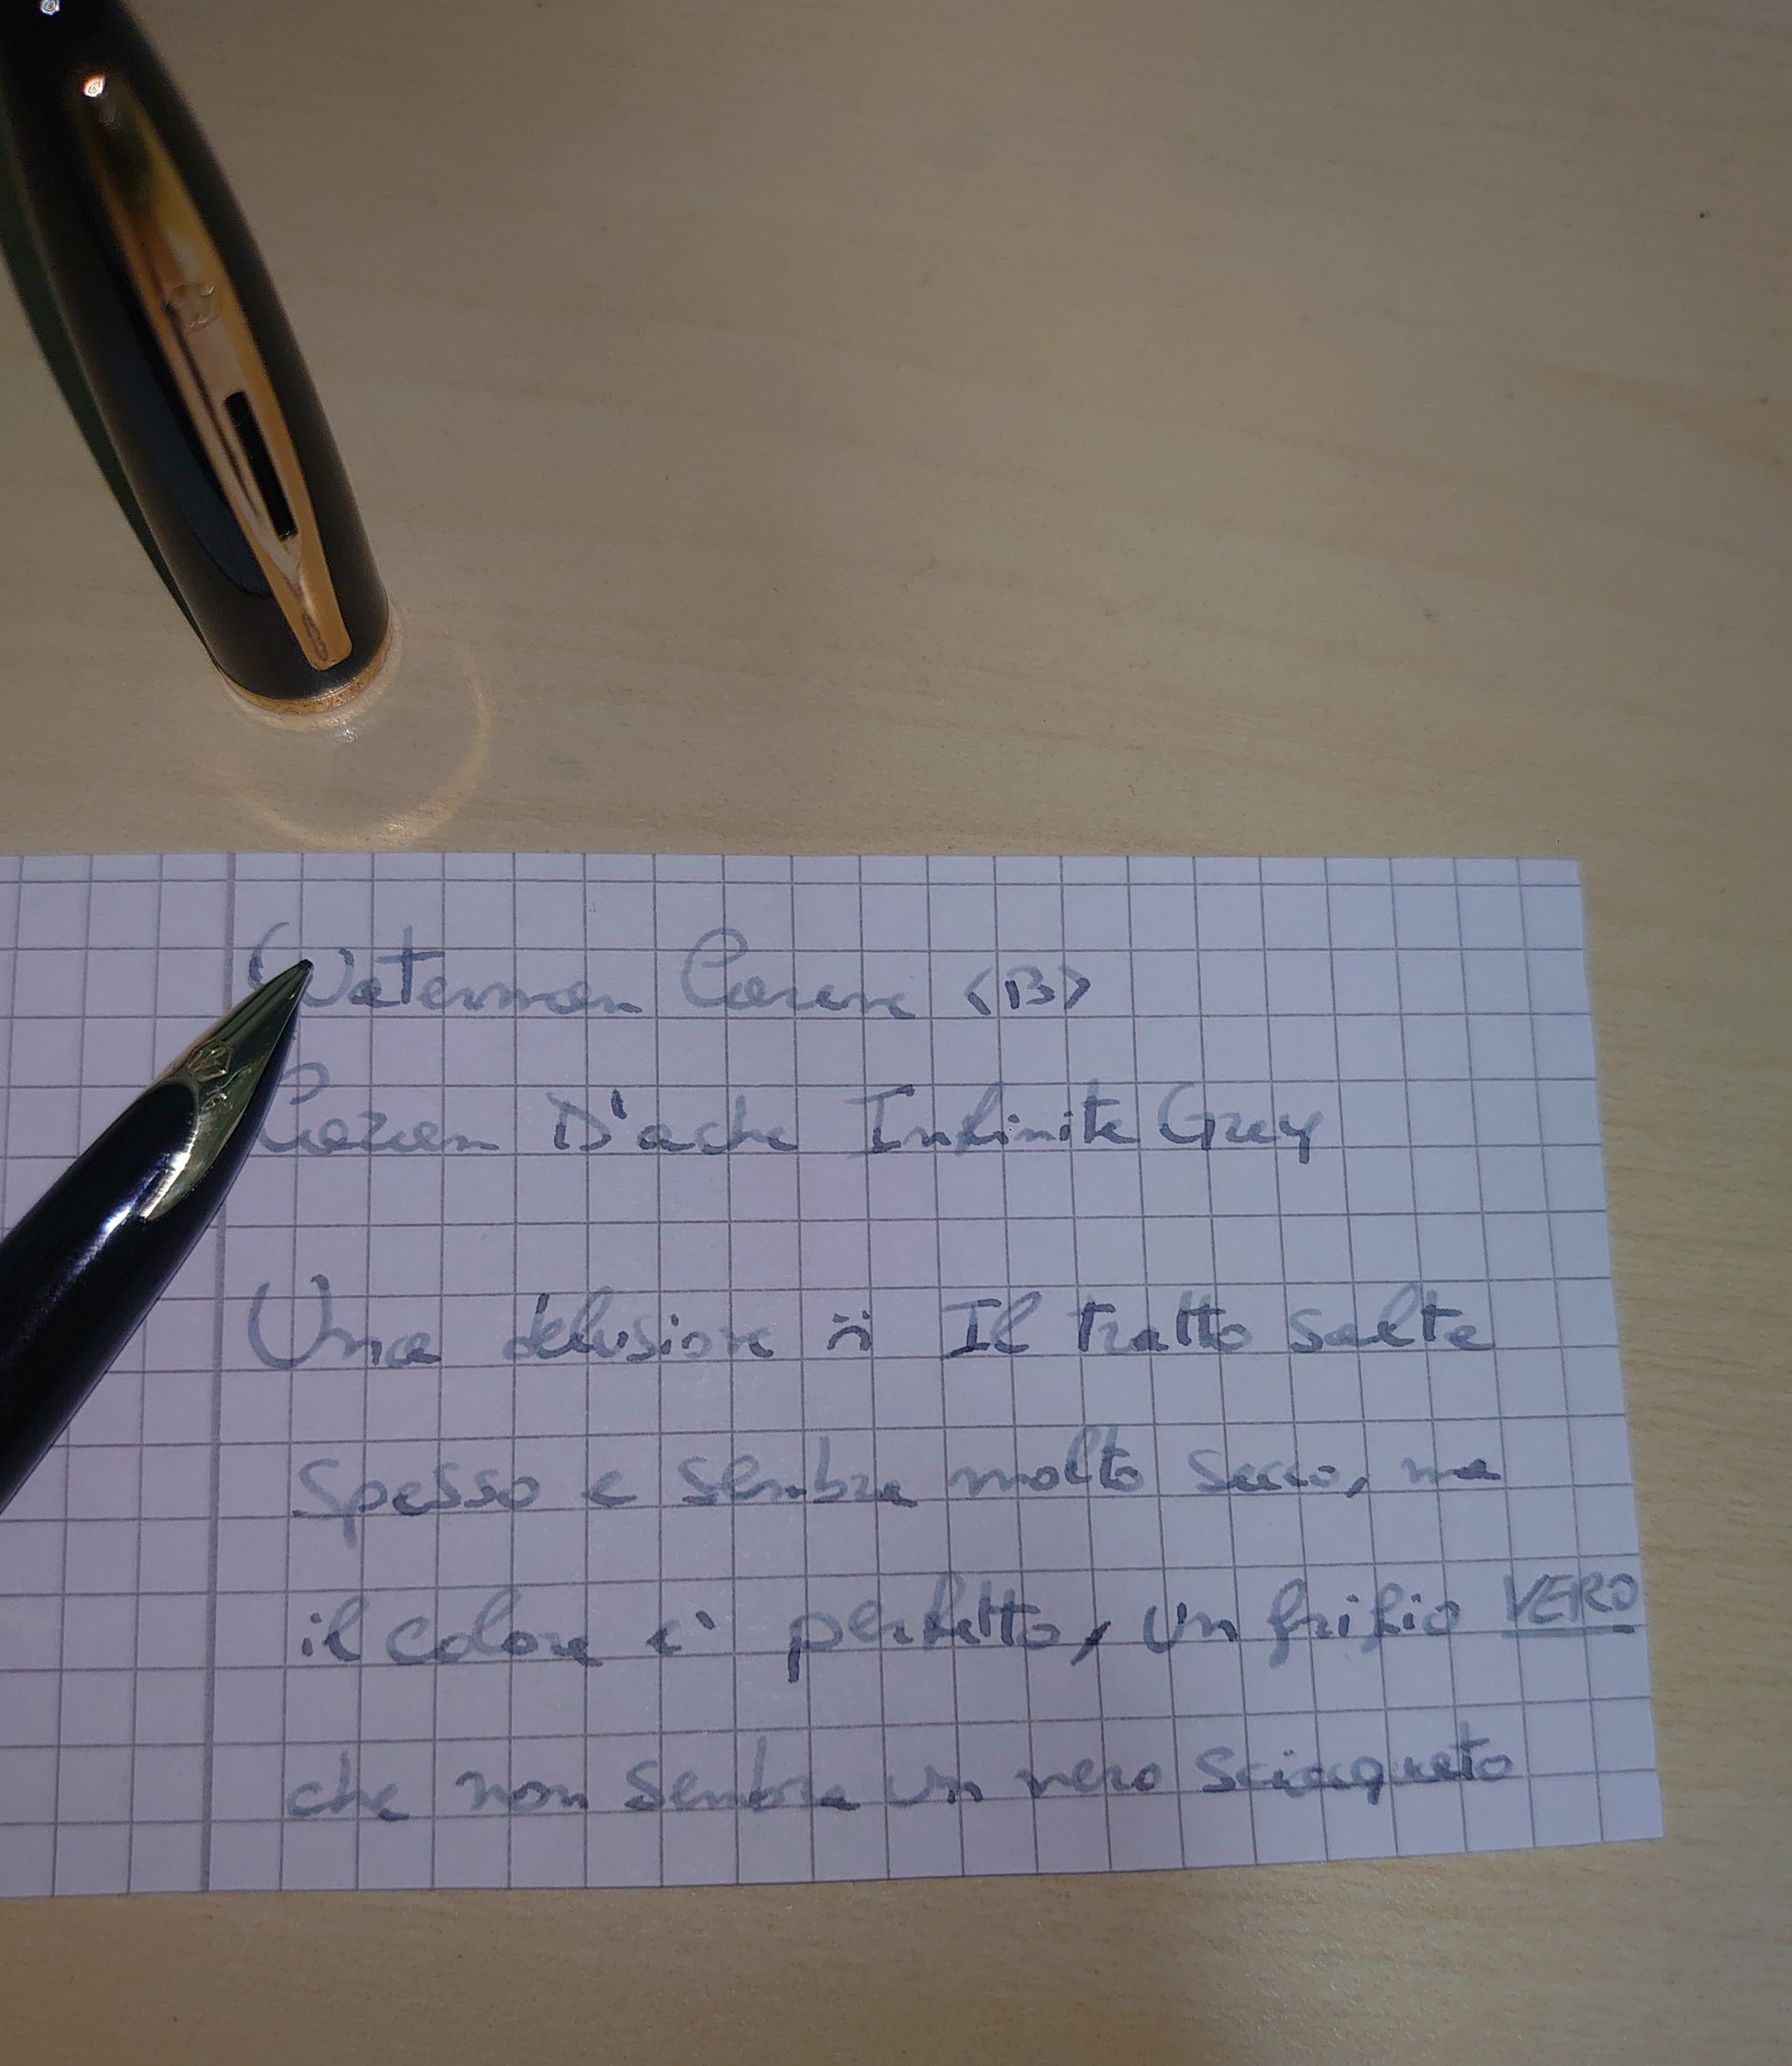 Waterman Carene <B>
Caran D'ache Infinite Grey
Una delusione :( Il tratto salta
spesso e sembra molto secco, ma
il colore è perfetto, un grigio VERO
che non sembra un nero sciaquato